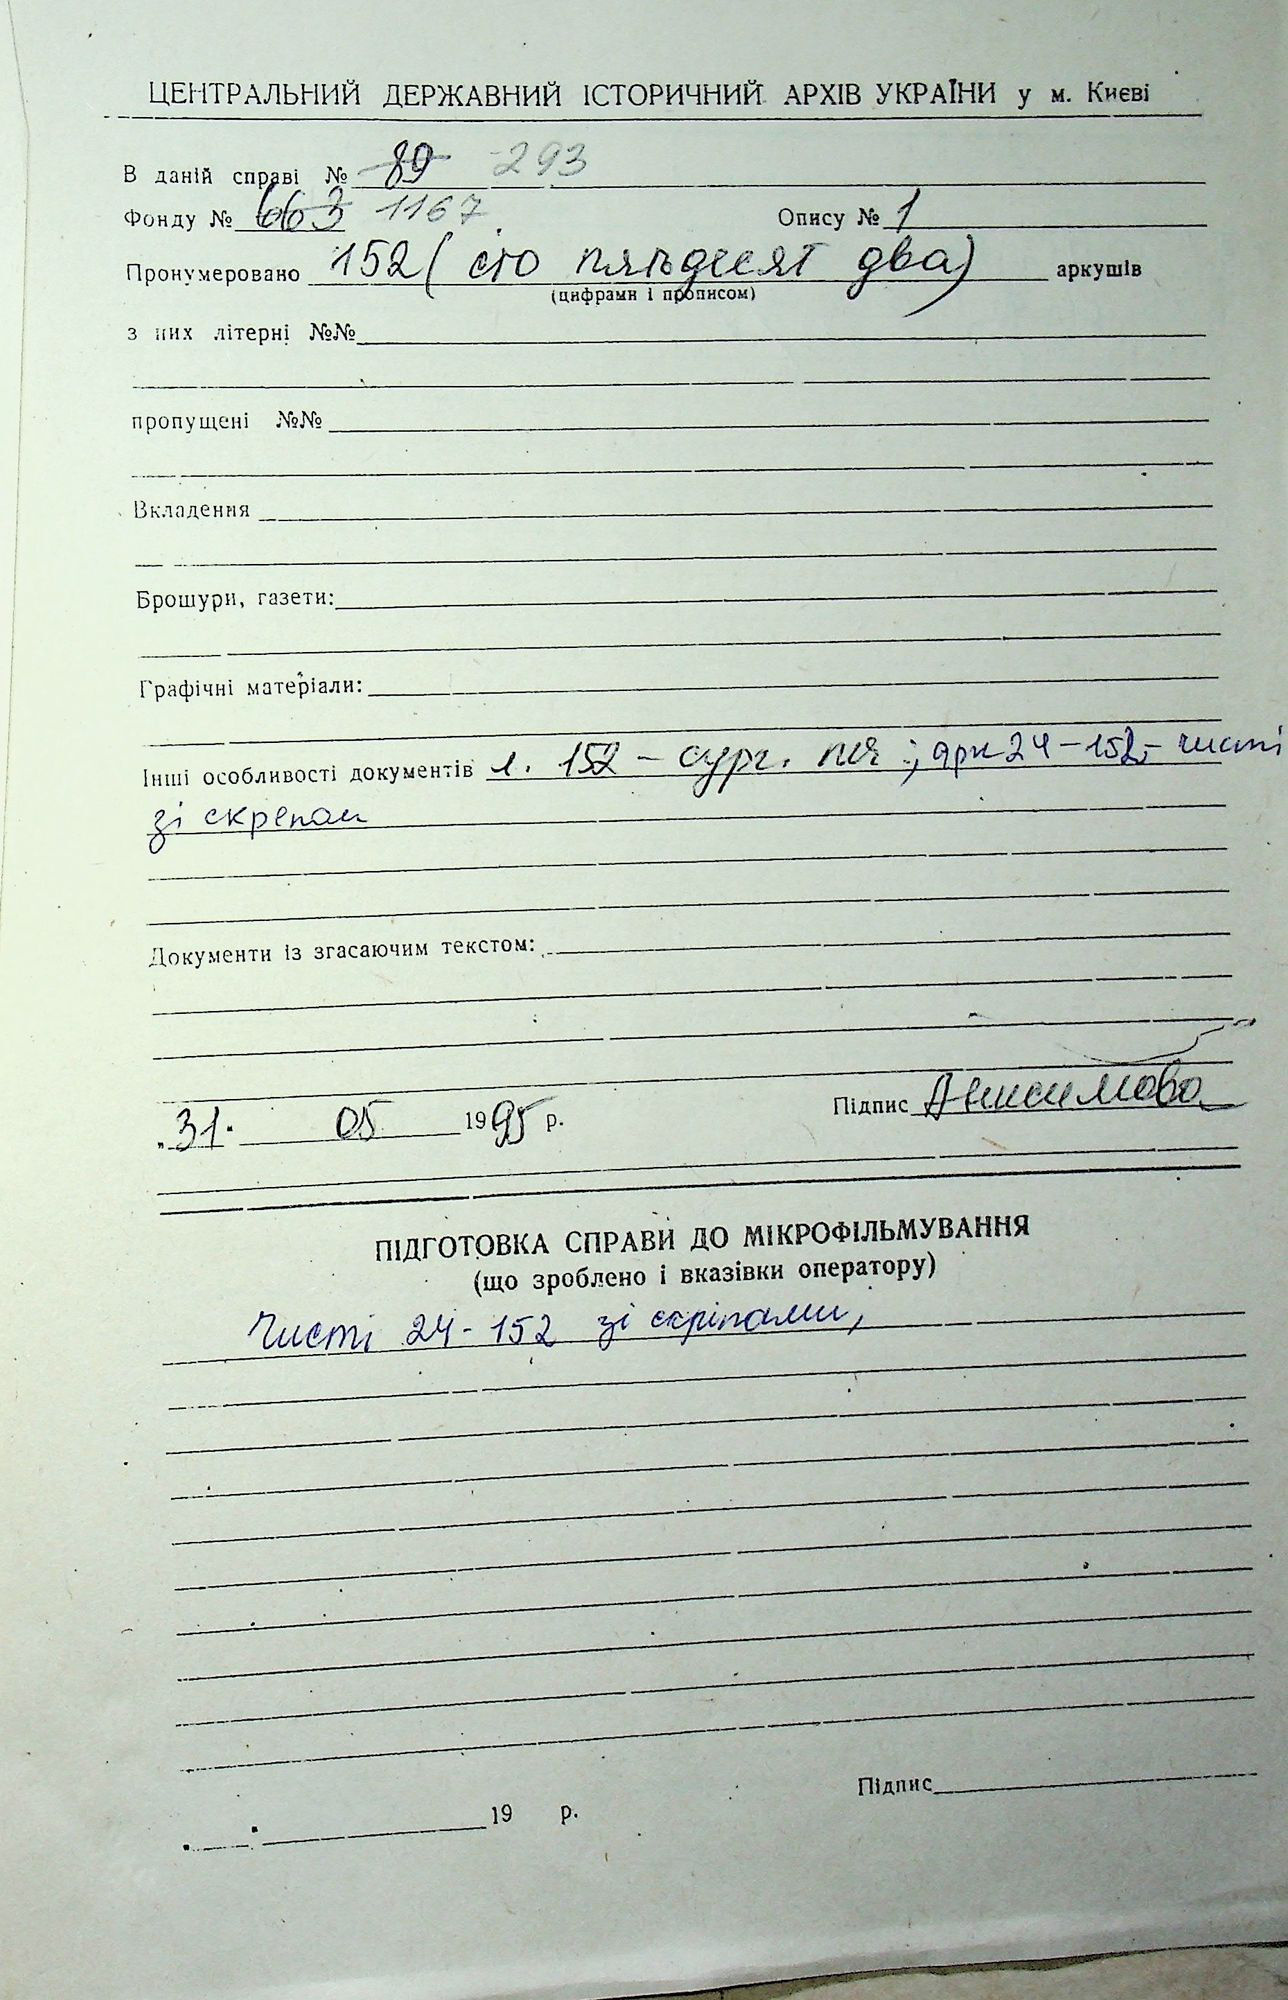 ЦЕНТРАЛЬНИЙ ДЕРЖАВНИЙ ІСТОРИЧНИЙ АРХІВ УКРАЇНИ у м. Києві
В даній справі № 89 293
Фонду № 663 1167 Опису № 1
Пронумеровано 152 (сто пятьдесят два) аркушів
(цифрами і прописом)
з них літерні №№
пропущені №№
Вкладення
Брошури, газети:
Графічні матеріали:
Інші особливості документів л. 152 – сург. печ.; арк 24–152 – чисті
зі скрепами
Документи із згасаючим текстом:
„31" 05 1995 р. Підпис Анисимова
ПІДГОТОВКА СПРАВИ ДО МІКРОФІЛЬМУВАННЯ
(що зроблено і вказівки оператору)
Чисті 24-152 зі скріпами,
Підпис
19 р.